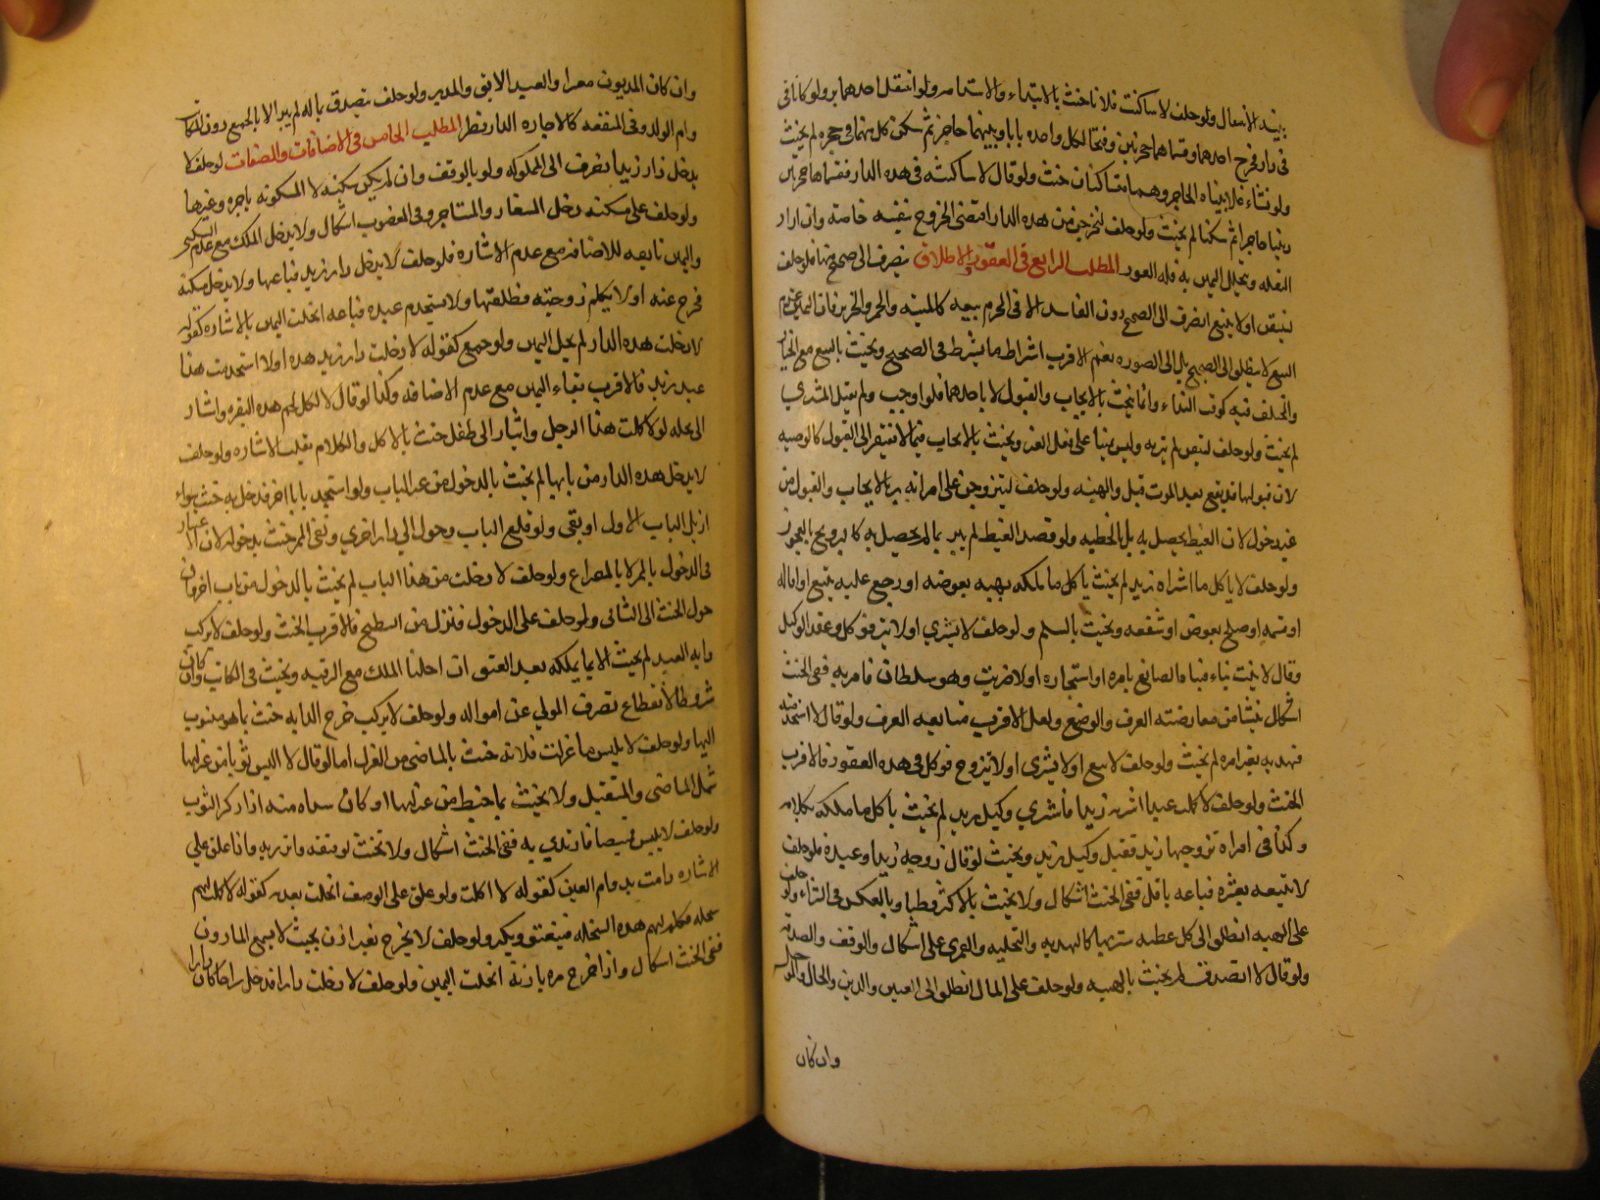 بهذه الافعال ولو حلف لا ساكنت فلانا حنث بالابتداء والاستدامه ولو انتقل احدهما بر ولو كانا فى
فى دار فخرج احدهما وقسماها حجرتين وفتحا لكل واحده بابا وبينهما حاجز ثم سكن كل منهما فى حجره لم يحنث
ولو تشاغلا ببناء الحاجز وهما متساكنان حنث ولو قال لا ساكنته فى هذه الدار فقسماها حجرتين
وبنيا حاجزا ثم سكنا لم يحنث ولو حلف ليخرجن من هذه الدار اقتضى الخروج بنفسه خاصة وان اراد
النقله وينحل اليمين به فله العود المطلب الرابع فى العقود والاطلاق ينصرف الى صحيحها فلو حلف
ليبيعن او لا يبيع انصرف الى الصحيح دون الفاسد الا فى المحرم بيعه كالميته والخمر والخنزير فان اليمين على عدم
البيع لا ينطلق الى الصحيح بل الى الصوره نعم الاقرب اشتراط ما يشترط فى الصحيح ويحنث بالبيع مع الخيار
والمختلف فيه كوقت النداء وانما يحنث بالايجاب والقبول لا باحدهما فلو اوجب ولم يقبل المشترى
لم يحنث ولو حلف ليبيعن لم يبر به وليس مبنيا على فعل الغير ويحنث بالايجاب فيما لا يفتقر الى القبول كالوصيه
لان قبولها قد يقع بعد الموت قبل والهبه ولو حلف ليتزوجن على امرأته بر بالايجاب والقبول من
غير دخول لان الغيظ يحصل به بل بالخطبه ولو قصد الغيظ لم يبر بما لا يحصل به كالتزويج بالعجوز
ولو حلف لا ياكل ما اشتراه زيد لم يحنث باكل ما ملكه بهبه بعوضه او رجع عليه ببيع او اقاله
او قسمه او صلح بعوض او شفعه ويحنث بالسلم ولو حلف لا يشترى او لا يتزوج فوكل وعقد الوكيل
وقال لا بنيت بناء فبناه الصانع بامره او استيجاره او لا ضربت وهو سلطان فامر به ففى الحنث
اشكال ينشا من معارضته العرف والوضع ولعل الاقرب متابعه العرف ولو قال لا استخدمته
فخدمه بغير امره لم يحنث ولو حلف لا يبيع او لا يشترى او لا يتزوج فوكل فى هذه العقود فالاقرب
الحنث ولو حلف لا كلمت عبدا اشتراه زيد فاشترى وكيل زيد لم يحنث باكل ما ملكه بكلامه
وكذا فى امراه تزوجها زيد فقبل وكيل زيد ويحنث لو قال زوجه زيد او عبده فلو حلف
لا يبيعه بعشره فباعه باقل ففى الحنث اشكال ولا يحنث بالاكثر قطعا وبالعكس فى الشراء ولو حلف
على الهبه انطلق الى كل عطيه متبرع بها كالهديه والنحله والعمرى على اشكال والوقف والصدقه
ولو قال لا اتصدق لم يحنث بالهبه ولو حلف على المال انطلق الى العين والدين والحال والمؤجل
وان كان
وان كان المديون معسرا والعبد الابق والمدبر ولو حلف يتصدق بماله لم يبر الا بالجميع دون المكاتب
وام الولد وفى المنفعه كالاجاره الدار نظر المطلب الخامس فى الاضافات والصفات لو حلف لا
يدخل دار زيد انصرف الى المملوكه ولو بالوقف وان لم يكن سكنه لا المسكونه باجره وغيرها
ولو حلف على مسكنه دخل المستعار والمستاجر وفى المغصوب اشكال ولا يدخل الملك مع عدم السكنى
واليمين تابعه للاضافه مع عدم الاشاره فلو حلف لا يدخل دار زيد فباعها ولا يدخل مسكنه
فخرج عنه او لا يكلم زوجته فطلقها ولا يستخدم عبده فباعه انحلت اليمين بالاشاره كقوله
لا دخلت هذه الدار لم يحل اليمين ولو جمع كقوله لا دخلت دار زيد هذه او لا استخدمت هذا
عبد زيد فالاقرب بقاء اليمين مع عدم الاضافه وكذا لو قال لا اكل لحم هذه البقره واشار
الى سخله لو لا كلمت هذا الرجل واشار الى طفل حنث بالاكل والكلام تغليب الاشاره ولو حلف
لا يدخل هذه الدار من بابها لم يحنث بالدخول من غير الباب ولو استجد بابا اخر فدخل به حنث سواء
ازيل الباب الاول او بقى ولو قلع الباب وحول الى دار اخرى وبقى الممر حنث بدخوله لان الاعتبار
فى الدخول بالممر لا بالمصراع ولو حلف لا دخلت من هذا الباب لم يحنث بالدخول من باب اخر وان
حول الخشب الى الثانى ولو حلف على الدخول فنزل من السطح فالاقرب الحنث ولو حلف لا يركب
دابه العبد لم يحنث الا بما يملكه بعد العتق ان احلنا الملك مع الرقيه ويحنث فى المكاتب وان كان
مشروطا لانقطاع تصرف المولى عن امواله ولو حلف لا يركب سرج الدابه حنث بما هو منسوب
اليها ولو حلف لا يلبس ما غزلت فلانه حنث بالماضى من الغزل اما لو قال لا البس ثوبا من غزلها
شمل الماضى والمستقبل ولا يحنث بما خيط من غزلها او كان سداه منه اذا ذكر الثوب
ولو حلف لا يلبس قميصا فارتدى به ففى الحنث اشكال ولا يحنث لو فتقه واتزر به واذا علق على
الاشاره دامت بدوام العين كقوله لا اكلت ولو علق على الوصف انحلت بعدمه كقوله لا كلت لحم
سخله فتكبر لحم هذه السخله فيعتق ويكبر ولو حلف لا يخرج بغير اذن بحيث لا يسمع الماذون
ففى الحنث اشكال واذا خرج مره باذنه انحلت اليمين ولو حلف لا دخلت دارا فدخل راكبا كان